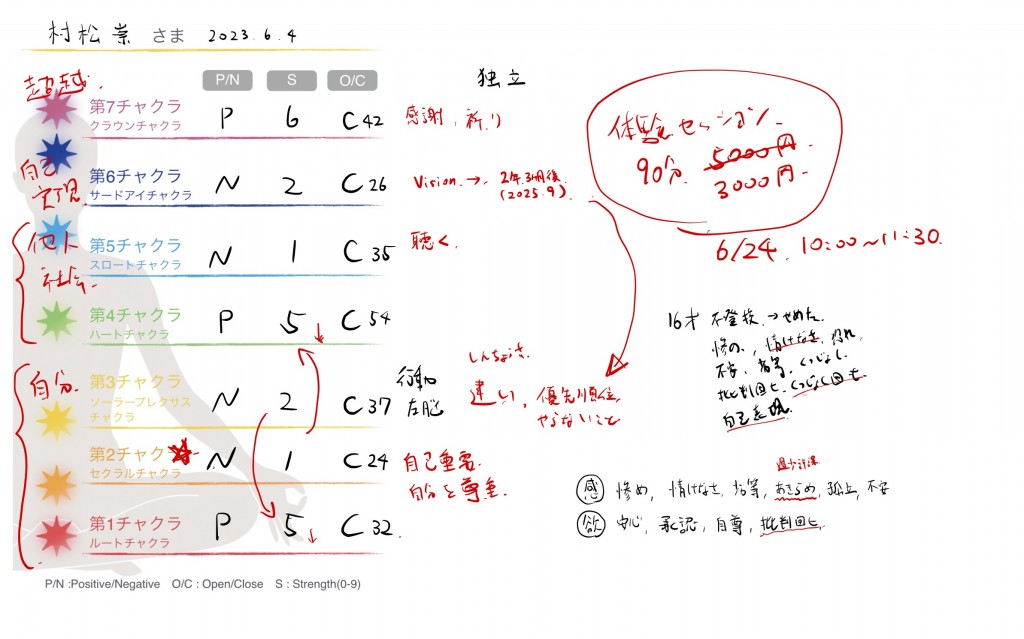 村松 崇 さま 2023.6.4
P/N S O/C
独立
超越
第7チャクラ P 6 C42 感謝、祈り
クラウンチャクラ
体験セッション
90分 5000円
3000円
6/24. 10:00~11:30.
自己実現
第6チャクラ N 2 C26 Vision → 2年3ヶ月後
サードアイチャクラ (2025.9)
他人
社会
第5チャクラ N 1 C35 聴く
スロートチャクラ
第4チャクラ P 5↓ C54
ハートチャクラ
16才 不登校 →やめた
惨め、情けなさ、恐れ
不安、劣等、
批判回ヒ、
自己表現
自分
第3チャクラ N 2 C37 行動 左脳
ソーラープレクサス
チャクラ
しんちょうさ
違い、優先順位、
やらないこと
第2チャクラ N 1 C24 自己重要
セクラルチャクラ 自分を尊重
過少評価
感 惨め、情けなさ、劣等、あきらめ、孤立、不安
欲 中心、承認、自尊、批判回ヒ
第1チャクラ P 5↓ C32
ルートチャクラ
P/N :Positive/Negative O/C : Open/Close S : Strength(0-9)